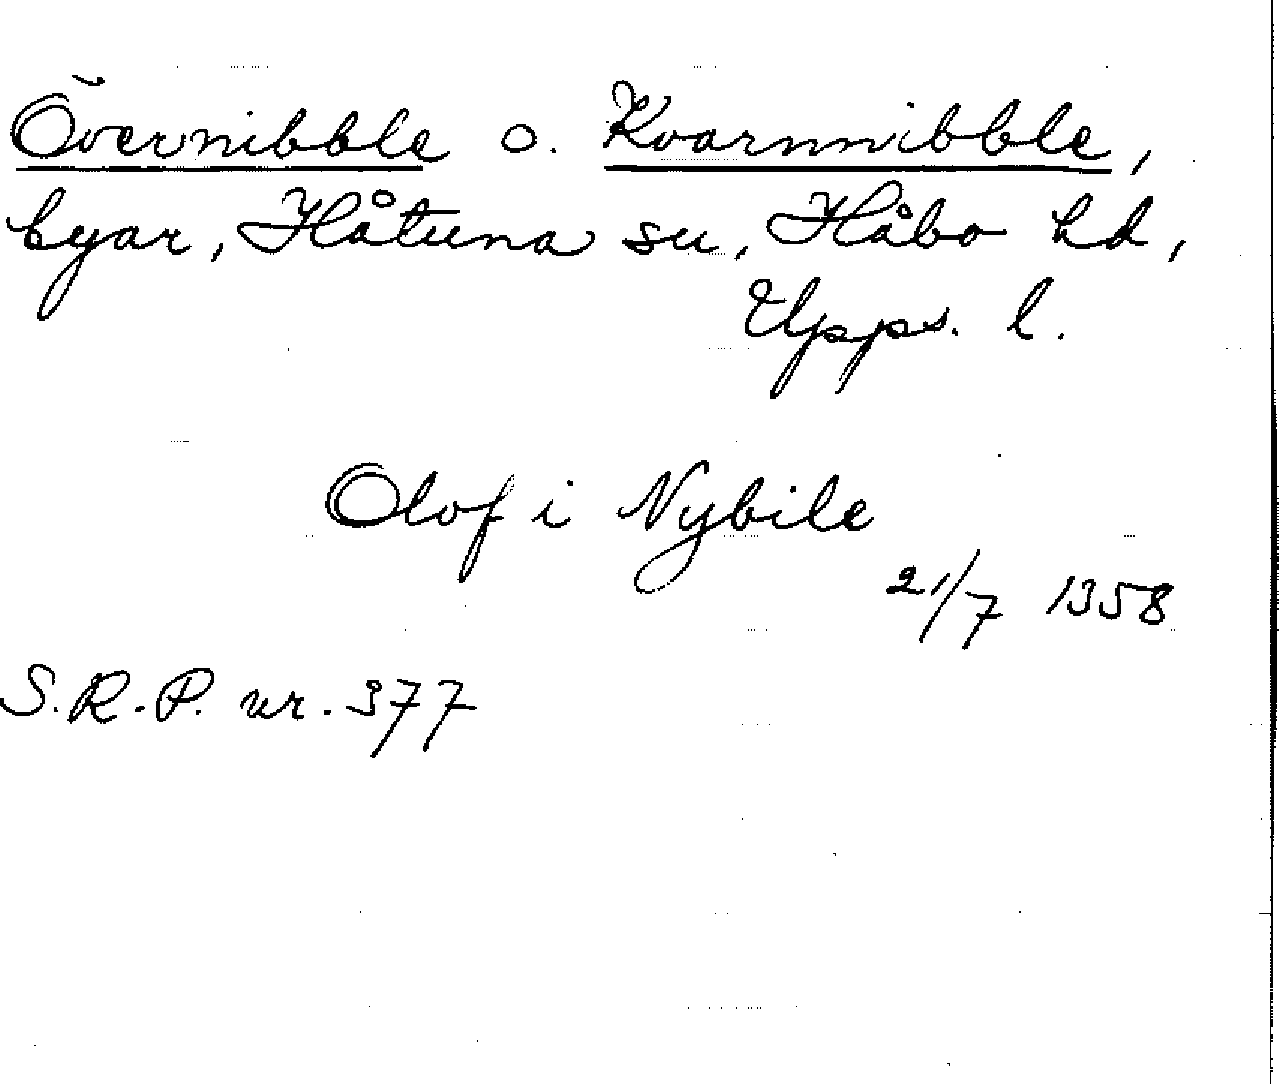 Övernibble o. Kvarnnibble,
byar, Håtuna sn, Håbo hd,
Upps. l.
Olof i Nybile
21/7 1358
S.R.P. nr. 377